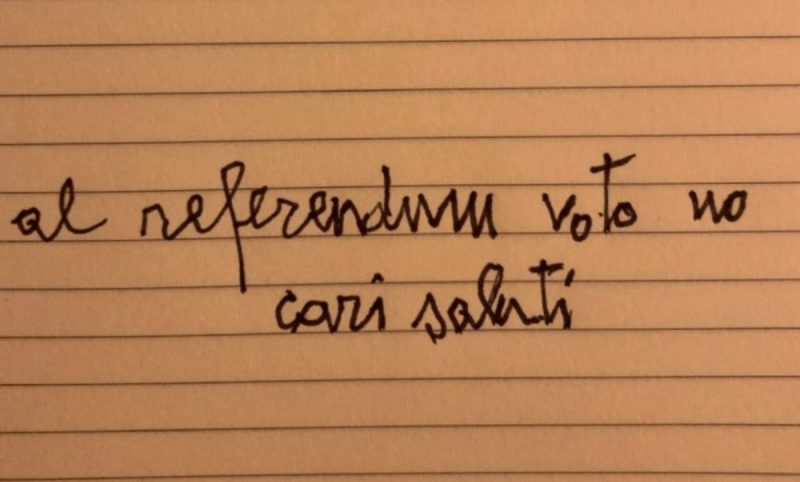 al referendum voto no
cari saluti